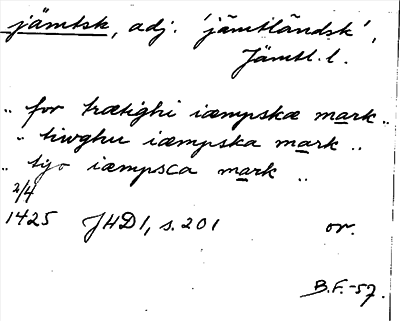 jämtsk, adj. 'jämtländsk',
Jämtl. l.
.. for trætighi iæmpskæ mark ..
.. tiwghu iæmpska mark ..
.. tijo iæmpsca mark ..
2/4
1425 JHD1, s. 201 or.
B.F.-57.